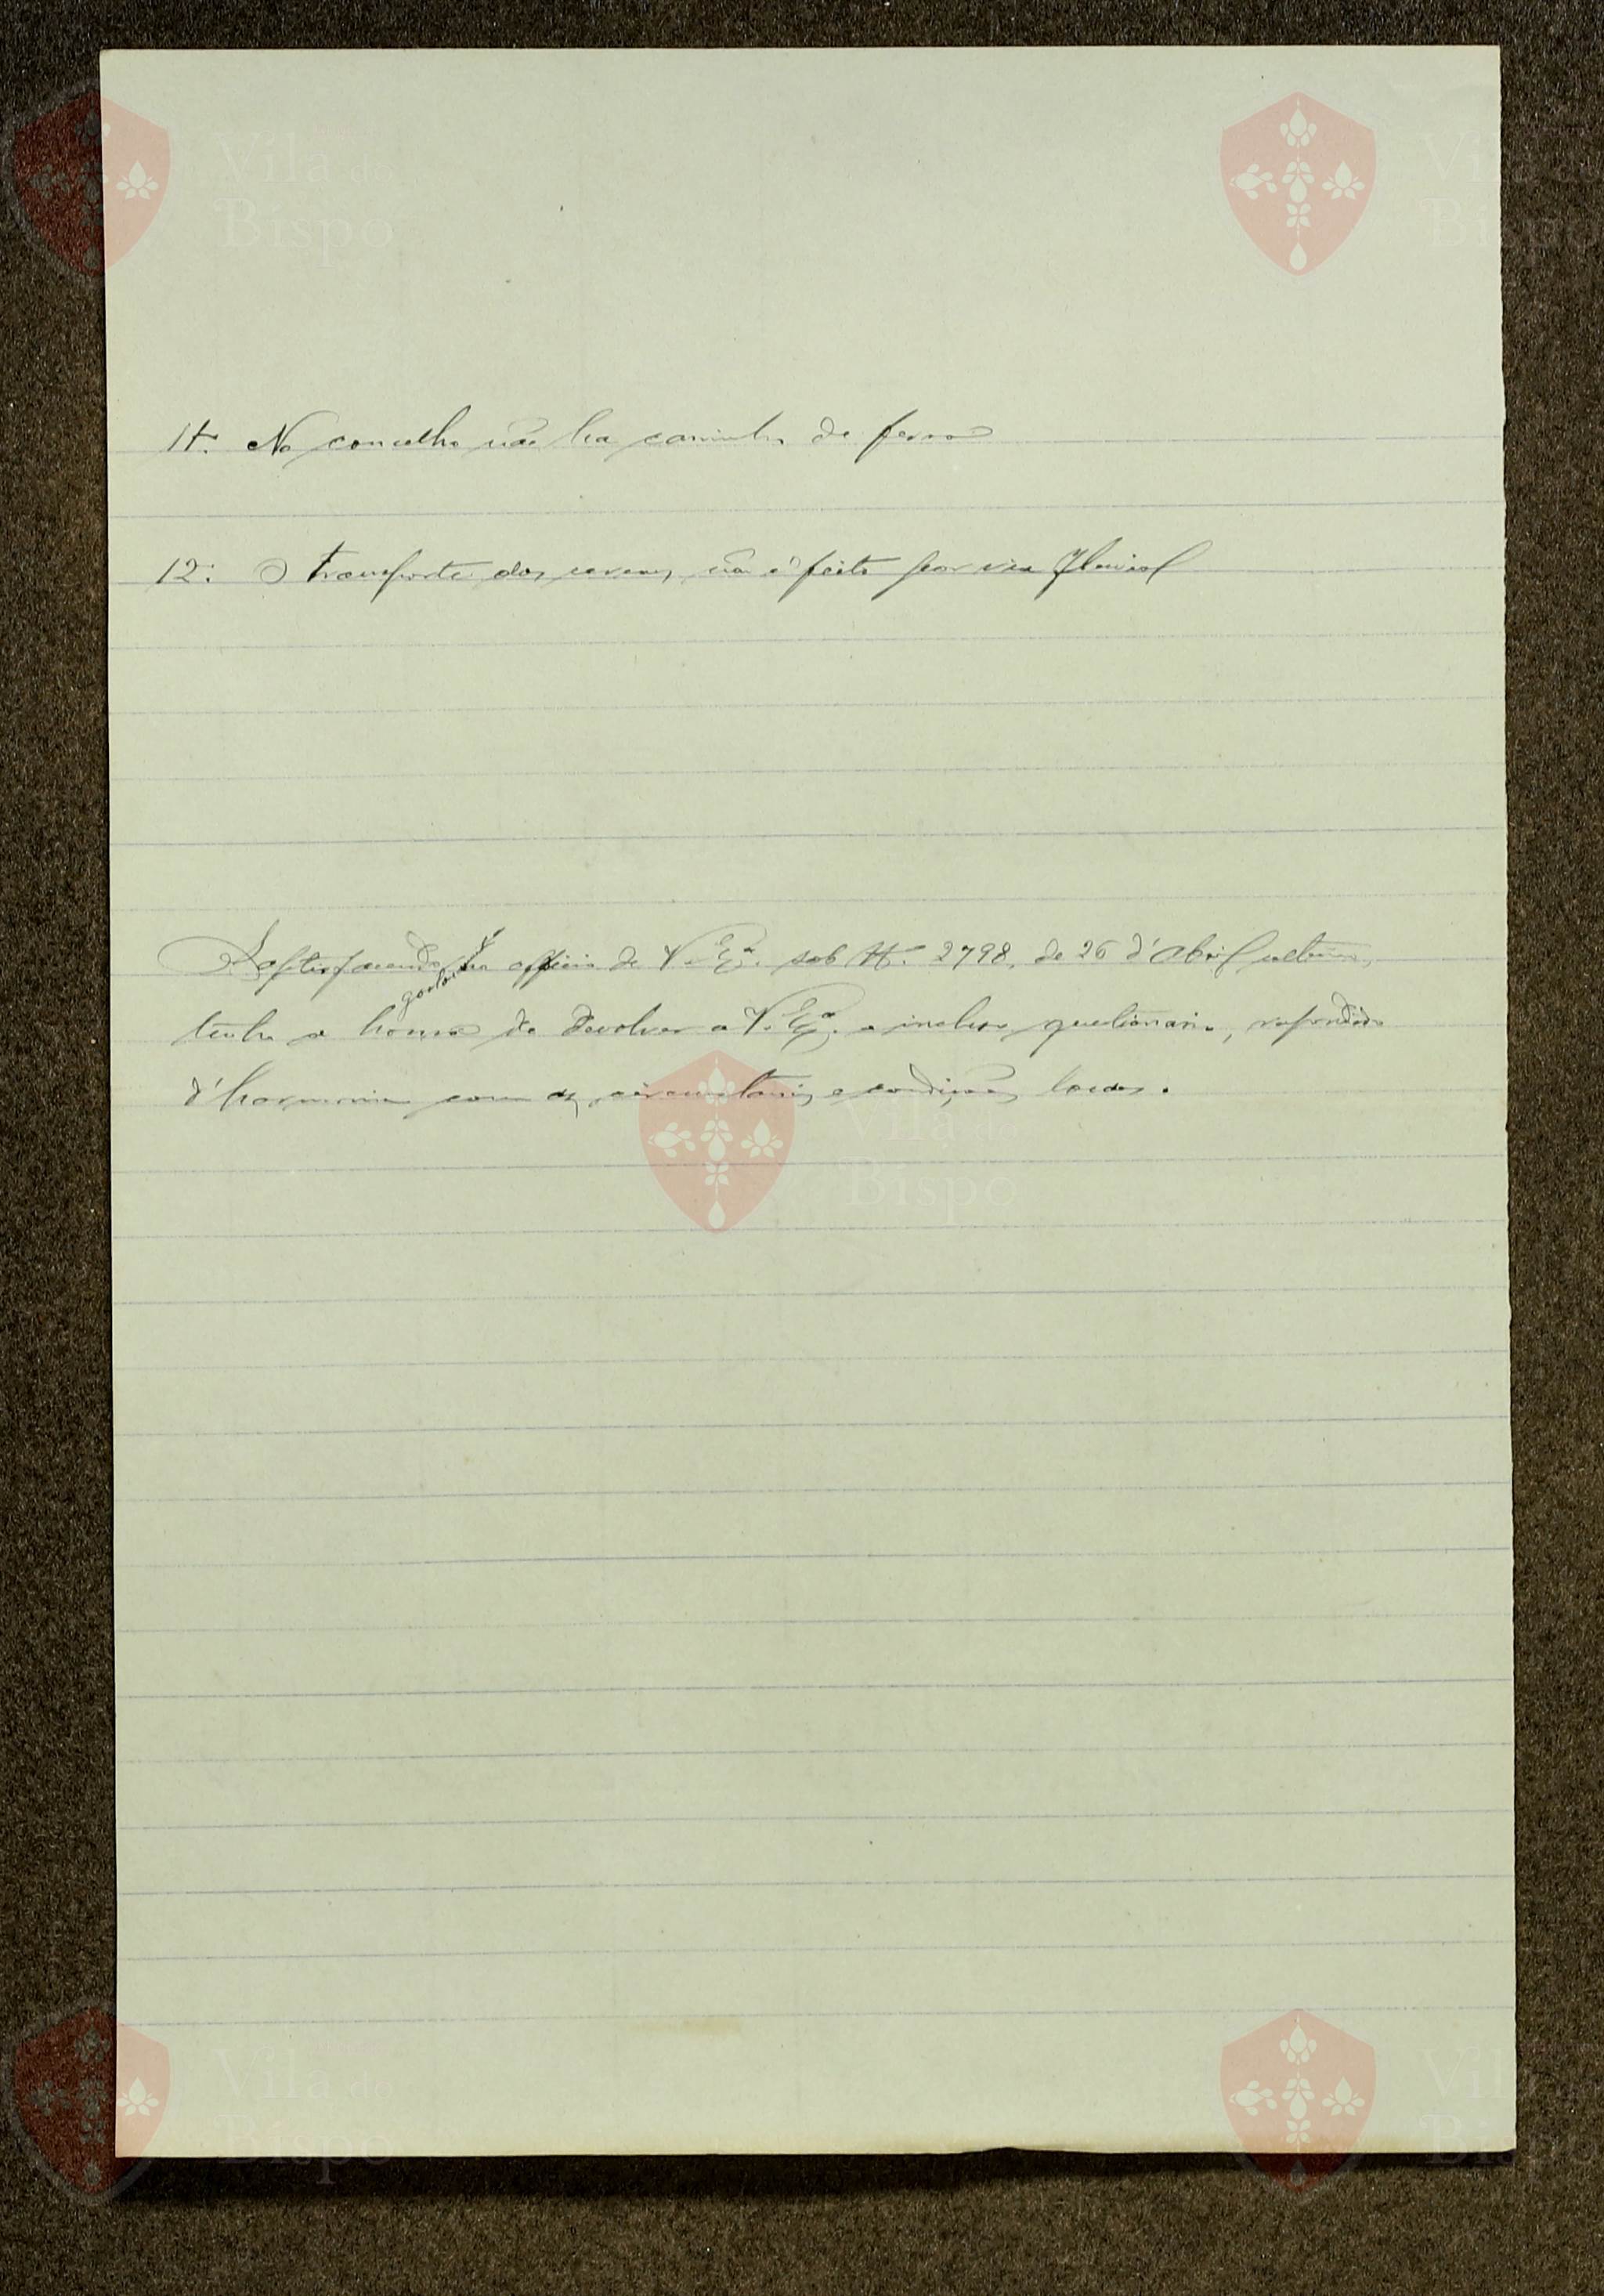 11.º No concelho não ha caminho de ferro
12.º O transporte dos não é feito por via fluvial
Satisfazendo ao officio de V. Ex.ª sob N.º 2798, de 26 d'Abril ultimo,
tenho a honra de devolver a V. Ex.ª o incluso questionario, respondido
d'harmonia com as circunstancias e condições locaes.
Vila do
Bispo
Vila do
Bispo
Vila do
Bispo